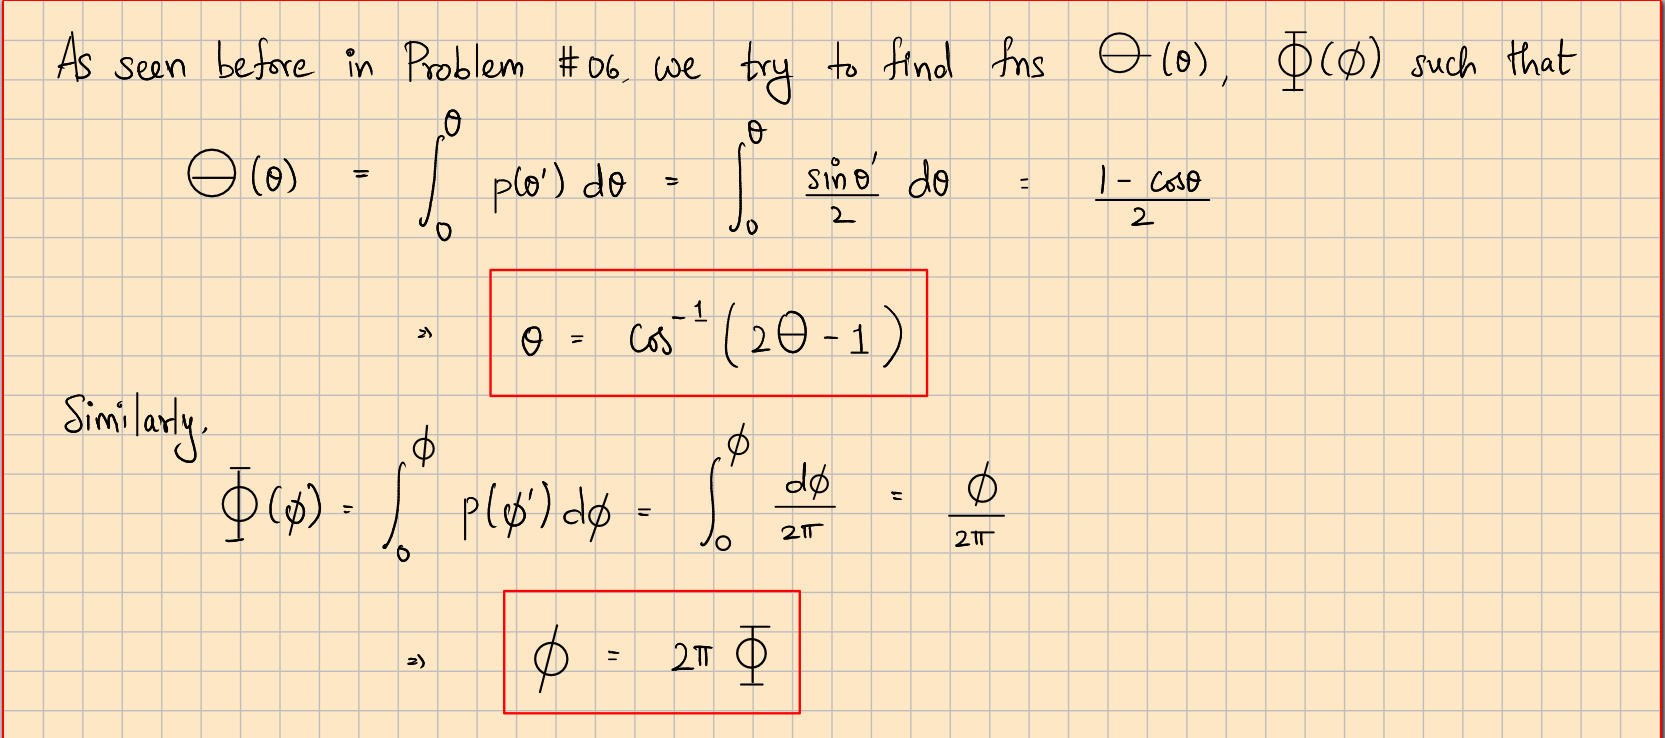 As seen before in Problem #06, we try to find fns Θ(θ), Φ(ϕ) such that
Θ(θ) = ∫₀^θ p(θ') dθ = ∫₀^θ sinθ'/2 dθ = (1 - cosθ)/2
⇒ θ = cos⁻¹(2Θ - 1)
Similarly,
Φ(ϕ) = ∫₀^ϕ p(ϕ') dϕ = ∫₀^ϕ dϕ/2π = ϕ/2π
⇒ ϕ = 2π Φ